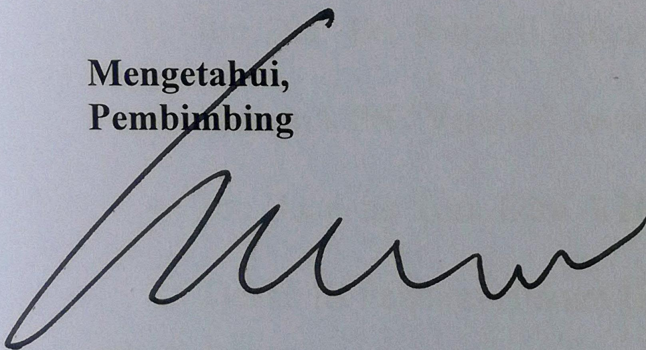 Mengetahui,
Pembimbing